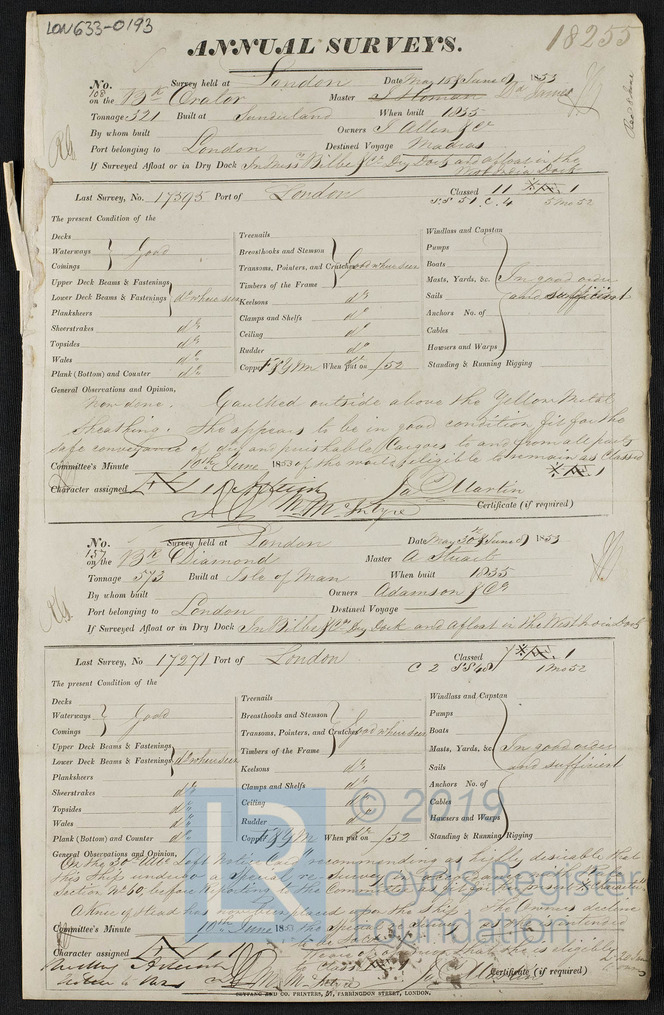 LON633-0193
18255
ANNUAL SURVEYS.
No. 108 Survey held at London Date May 18 & June 9 1853
on the Bk Orator Master J Homan James
Tonnage 321 Built at Sunderland When built 1835
By whom built Owners J. Allen & Co
Port belonging to London Destined Voyage Madras
If Surveyed Afloat or in Dry Dock In Messrs Bilbe & Co Dry Dock and afloat in the
West India Dock
Last Survey, No. 17595 Port of London Classed 11 Æ 1
SS 51. C. 4 5 Mo 52
The present Condition of the
Decks
Waterways
Comings
Good
Upper Deck Beams & Fastenings
Lower Deck Beams & Fastenings
Planksheers
do where seen
Sheerstrakes do
Topsides do
Wales do
Plank (Bottom) and Counter do
Treenails
Breasthooks and Stemson
Transoms, Pointers, and Crutches
Timbers of the Frame
Good where seen
Keelsons do
Clamps and Shelfs do
Ceiling do
Rudder do
Copper F & YM When put on /52
Windlass and Capstan
Pumps
Boats
Masts, Yards, &c.
Sails
Anchors No. of
Cables
Hawsers and Warps
In good order
and sufficient
Standing & Running Rigging
General Observations and Opinion,
Now done. Caulked outside above the Yellow Metal
Sheathing. She appears to be in good condition, fit for the
safe conveyance of dry and perishable Cargoes to and from all parts
of the world & eligible to remain as Classed
Æ 1
Committee's Minute 10th June 1853
Character assigned Æ 1
Jas Martin
W. McIntyre
Certificate (if required)
No. 157 Survey held at London Date May 30th & June 9 1853
on the Bk Diamond Master A Stuart
Tonnage 573 Built at Isle of Man When built 1835
By whom built Owners Adamson & Co
Port belonging to London Destined Voyage
If Surveyed Afloat or in Dry Dock In Bilbe & Co Dry Dock and Afloat in the West India Dock
Last Survey, No 17271 Port of London Classed Æ 1
C 2 SS 48 1 Mo 52
The present Condition of the
Decks
Waterways
Comings
Good
Upper Deck Beams & Fastenings
Lower Deck Beams & Fastenings
Planksheers
do where seen
Sheerstrakes do
Topsides do
Wales do
Plank (Bottom) and Counter do
Treenails
Breasthooks and Stemson
Transoms, Pointers, and Crutches
Timbers of the Frame
Good where seen
Keelsons do
Clamps and Shelfs do
Ceiling do
Rudder do
Copper F & YM When put on /52
Windlass and Capstan
Pumps
Boats
Masts, Yards, &c
Sails
Anchors No. of
Cables
Hawsers and Warps
In good order
and sufficient
Standing & Running Rigging
General Observations and Opinion,
recommending as highly desirable that
this Ship undergo a Special re-Survey
Section No 60, before reporting to the Committee
A Knee of Head has now been placed upon the Ship. The Owners decline
the Special Survey
Committee's Minute 10th June 1853
Character assigned Æ 1
that she is eligible
to class
W. McIntyre
Jas Martin
Certificate (if required)
SEYFANG AND CO. PRINTERS, 57, FARRINGDON STREET, LONDON.
LR
© 2019
Lloyd's Register
Foundation